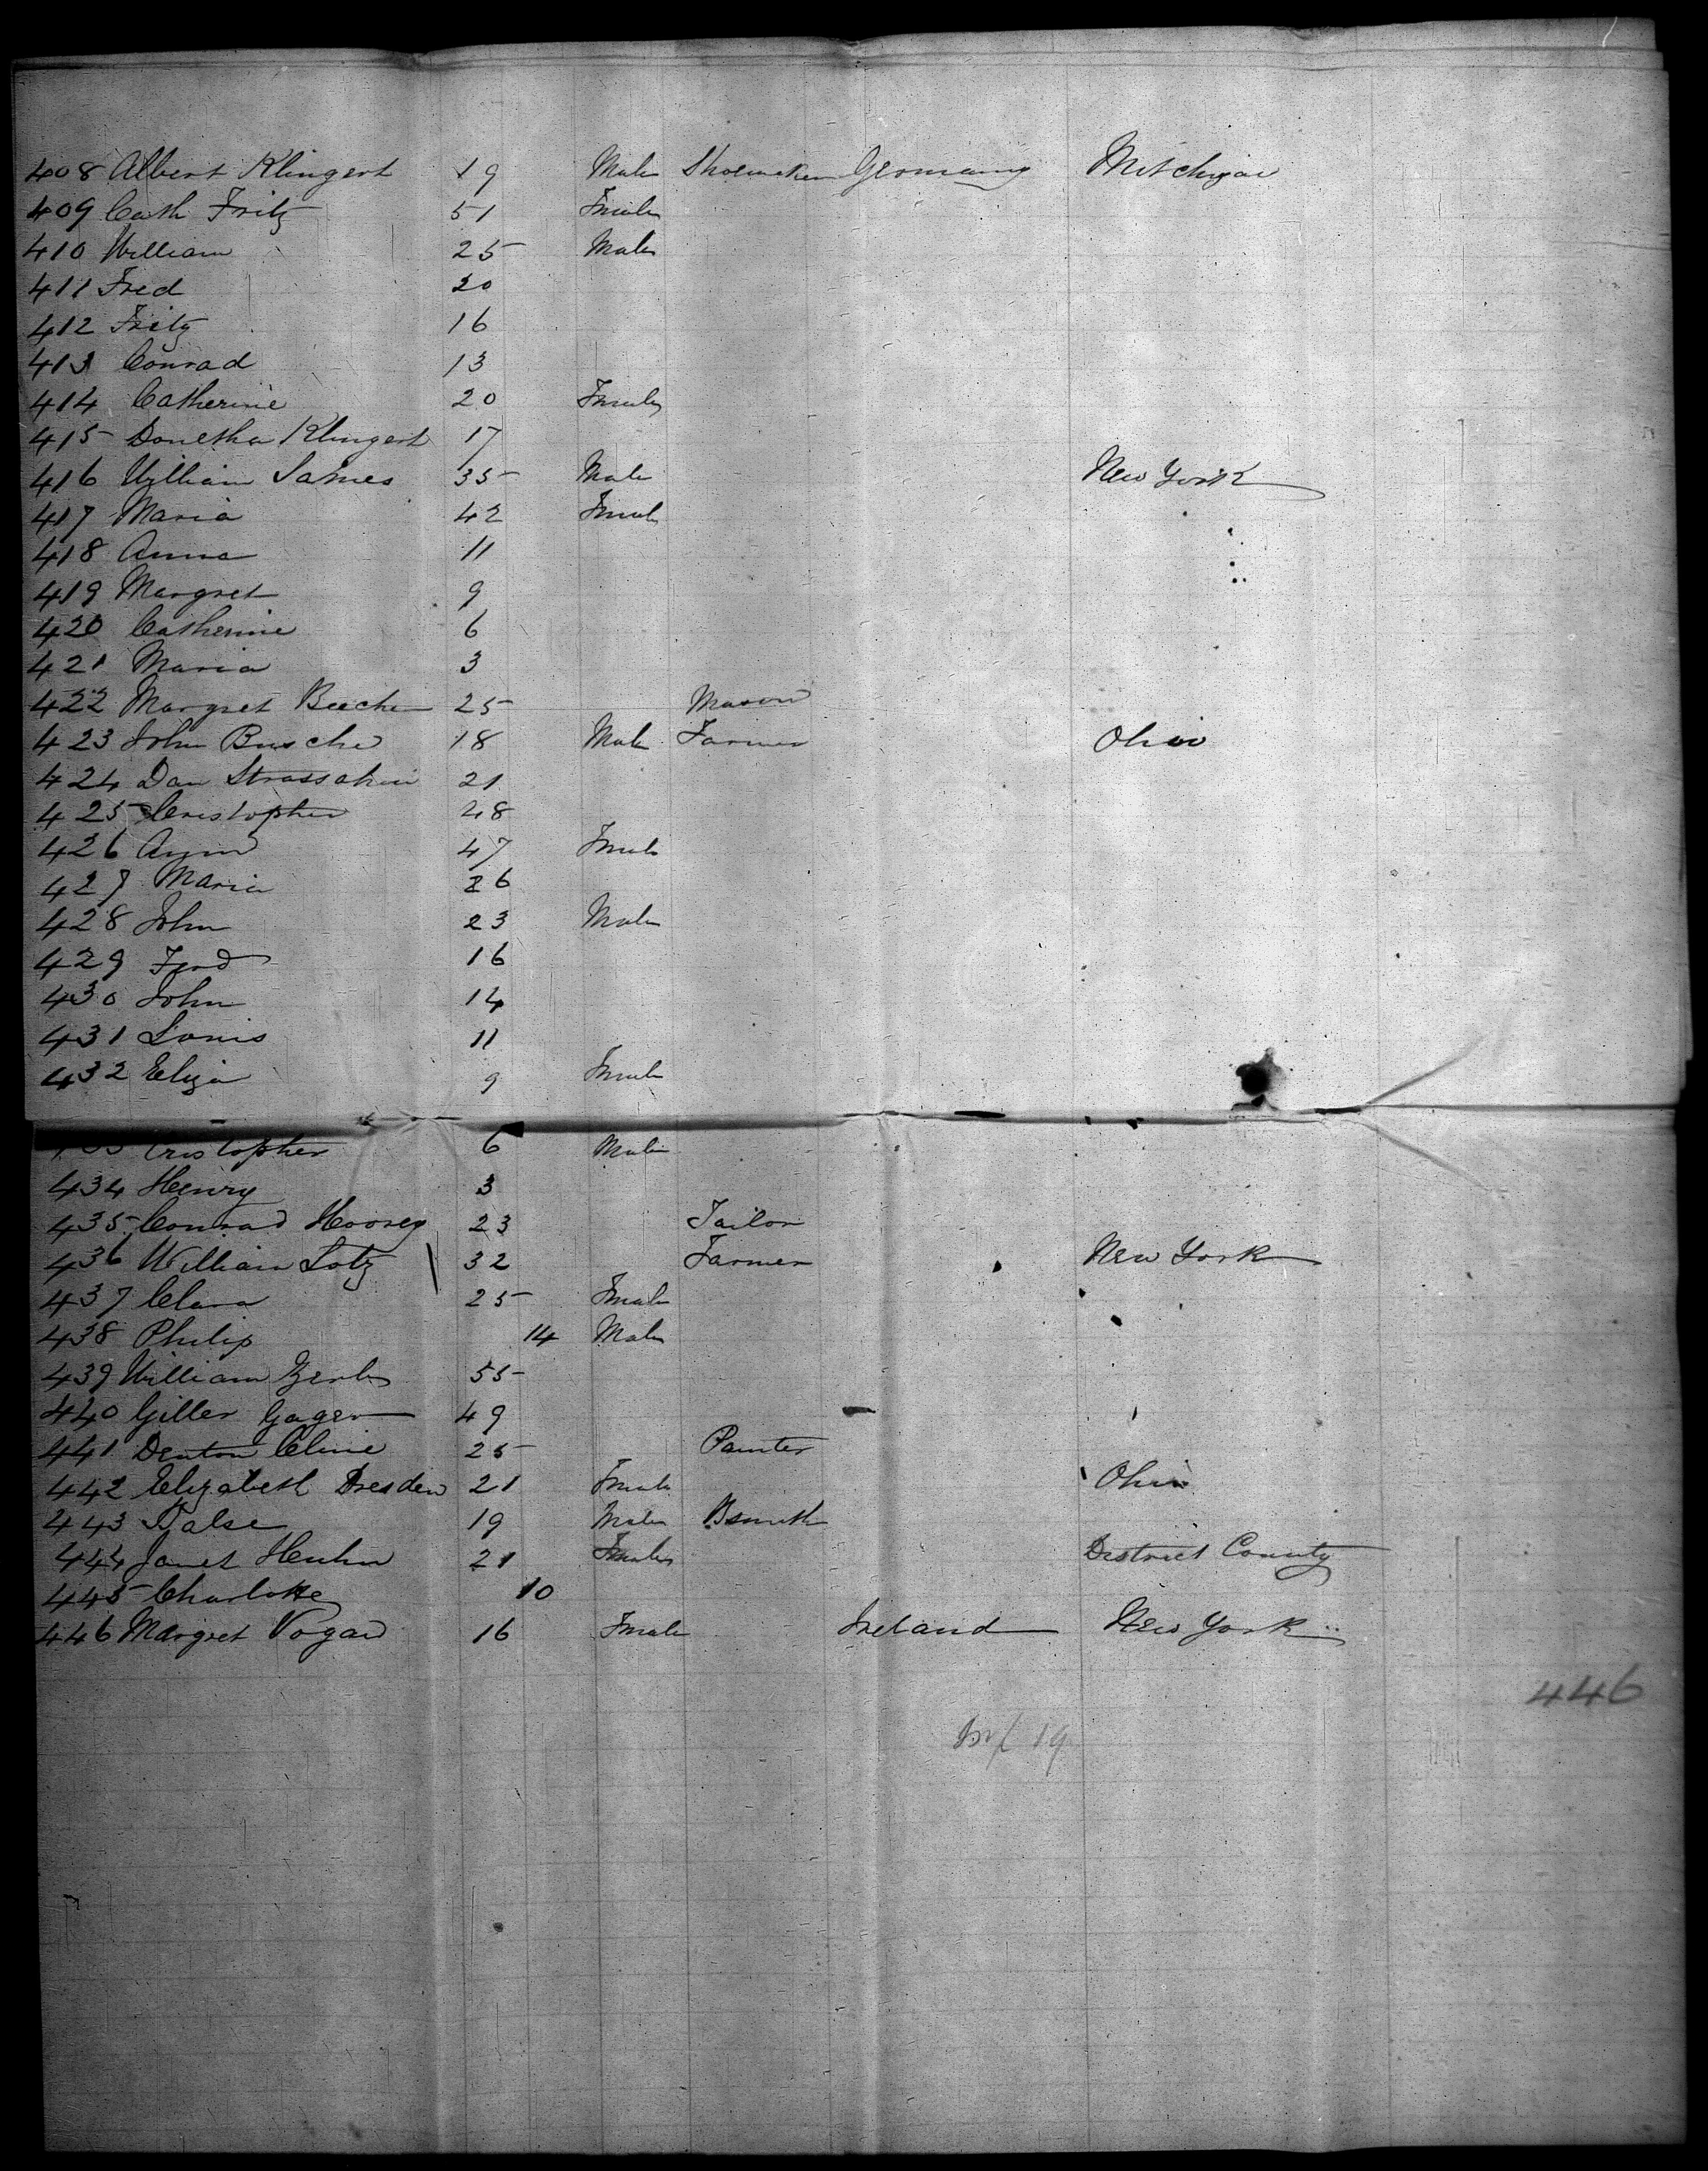 408 Albert Klingert 19 Male Shoemaker Germany Mitchigan
409 Cath Fritz 51 Female
410 William 25 Male
411 Fred 20
412 Fritz 16
413 Conrad 13
414 Catherine 20 Female
415 Donetha Klingert 17
416 William James 35 Male New York
417 Maria 42 Female
418 Anna 11
419 Margret 9
420 Catherine 6
421 Maria 3
422 Margret Beecher 25 Mason
423 John Busche 18 Male Farmer Ohio
424 Dan 21
425 Cristopher 48
426 47 Female
427 Maria 26
428 John 23 Male
429 Ferd 16
430 John 14
431 Louis 11
432 Eliza 9 Female
Cristopher 6 Male
434 Henry 3
435 Conrad 23 Tailor
436 William Lotz 32 Farmer New York
437 Clara 25 Female
438 Philip 14 Male
439 William 55
440 Giller Gager 49
441 Denton Cline 25 Painter
442 Elizabeth Dresden 21 Female Ohio
443 19 Male Bsmith
444 Janet Huhn 21 Female District County
445 Charlotte 10
446 Margret Vogan 16 Female Ireland New York
446
19